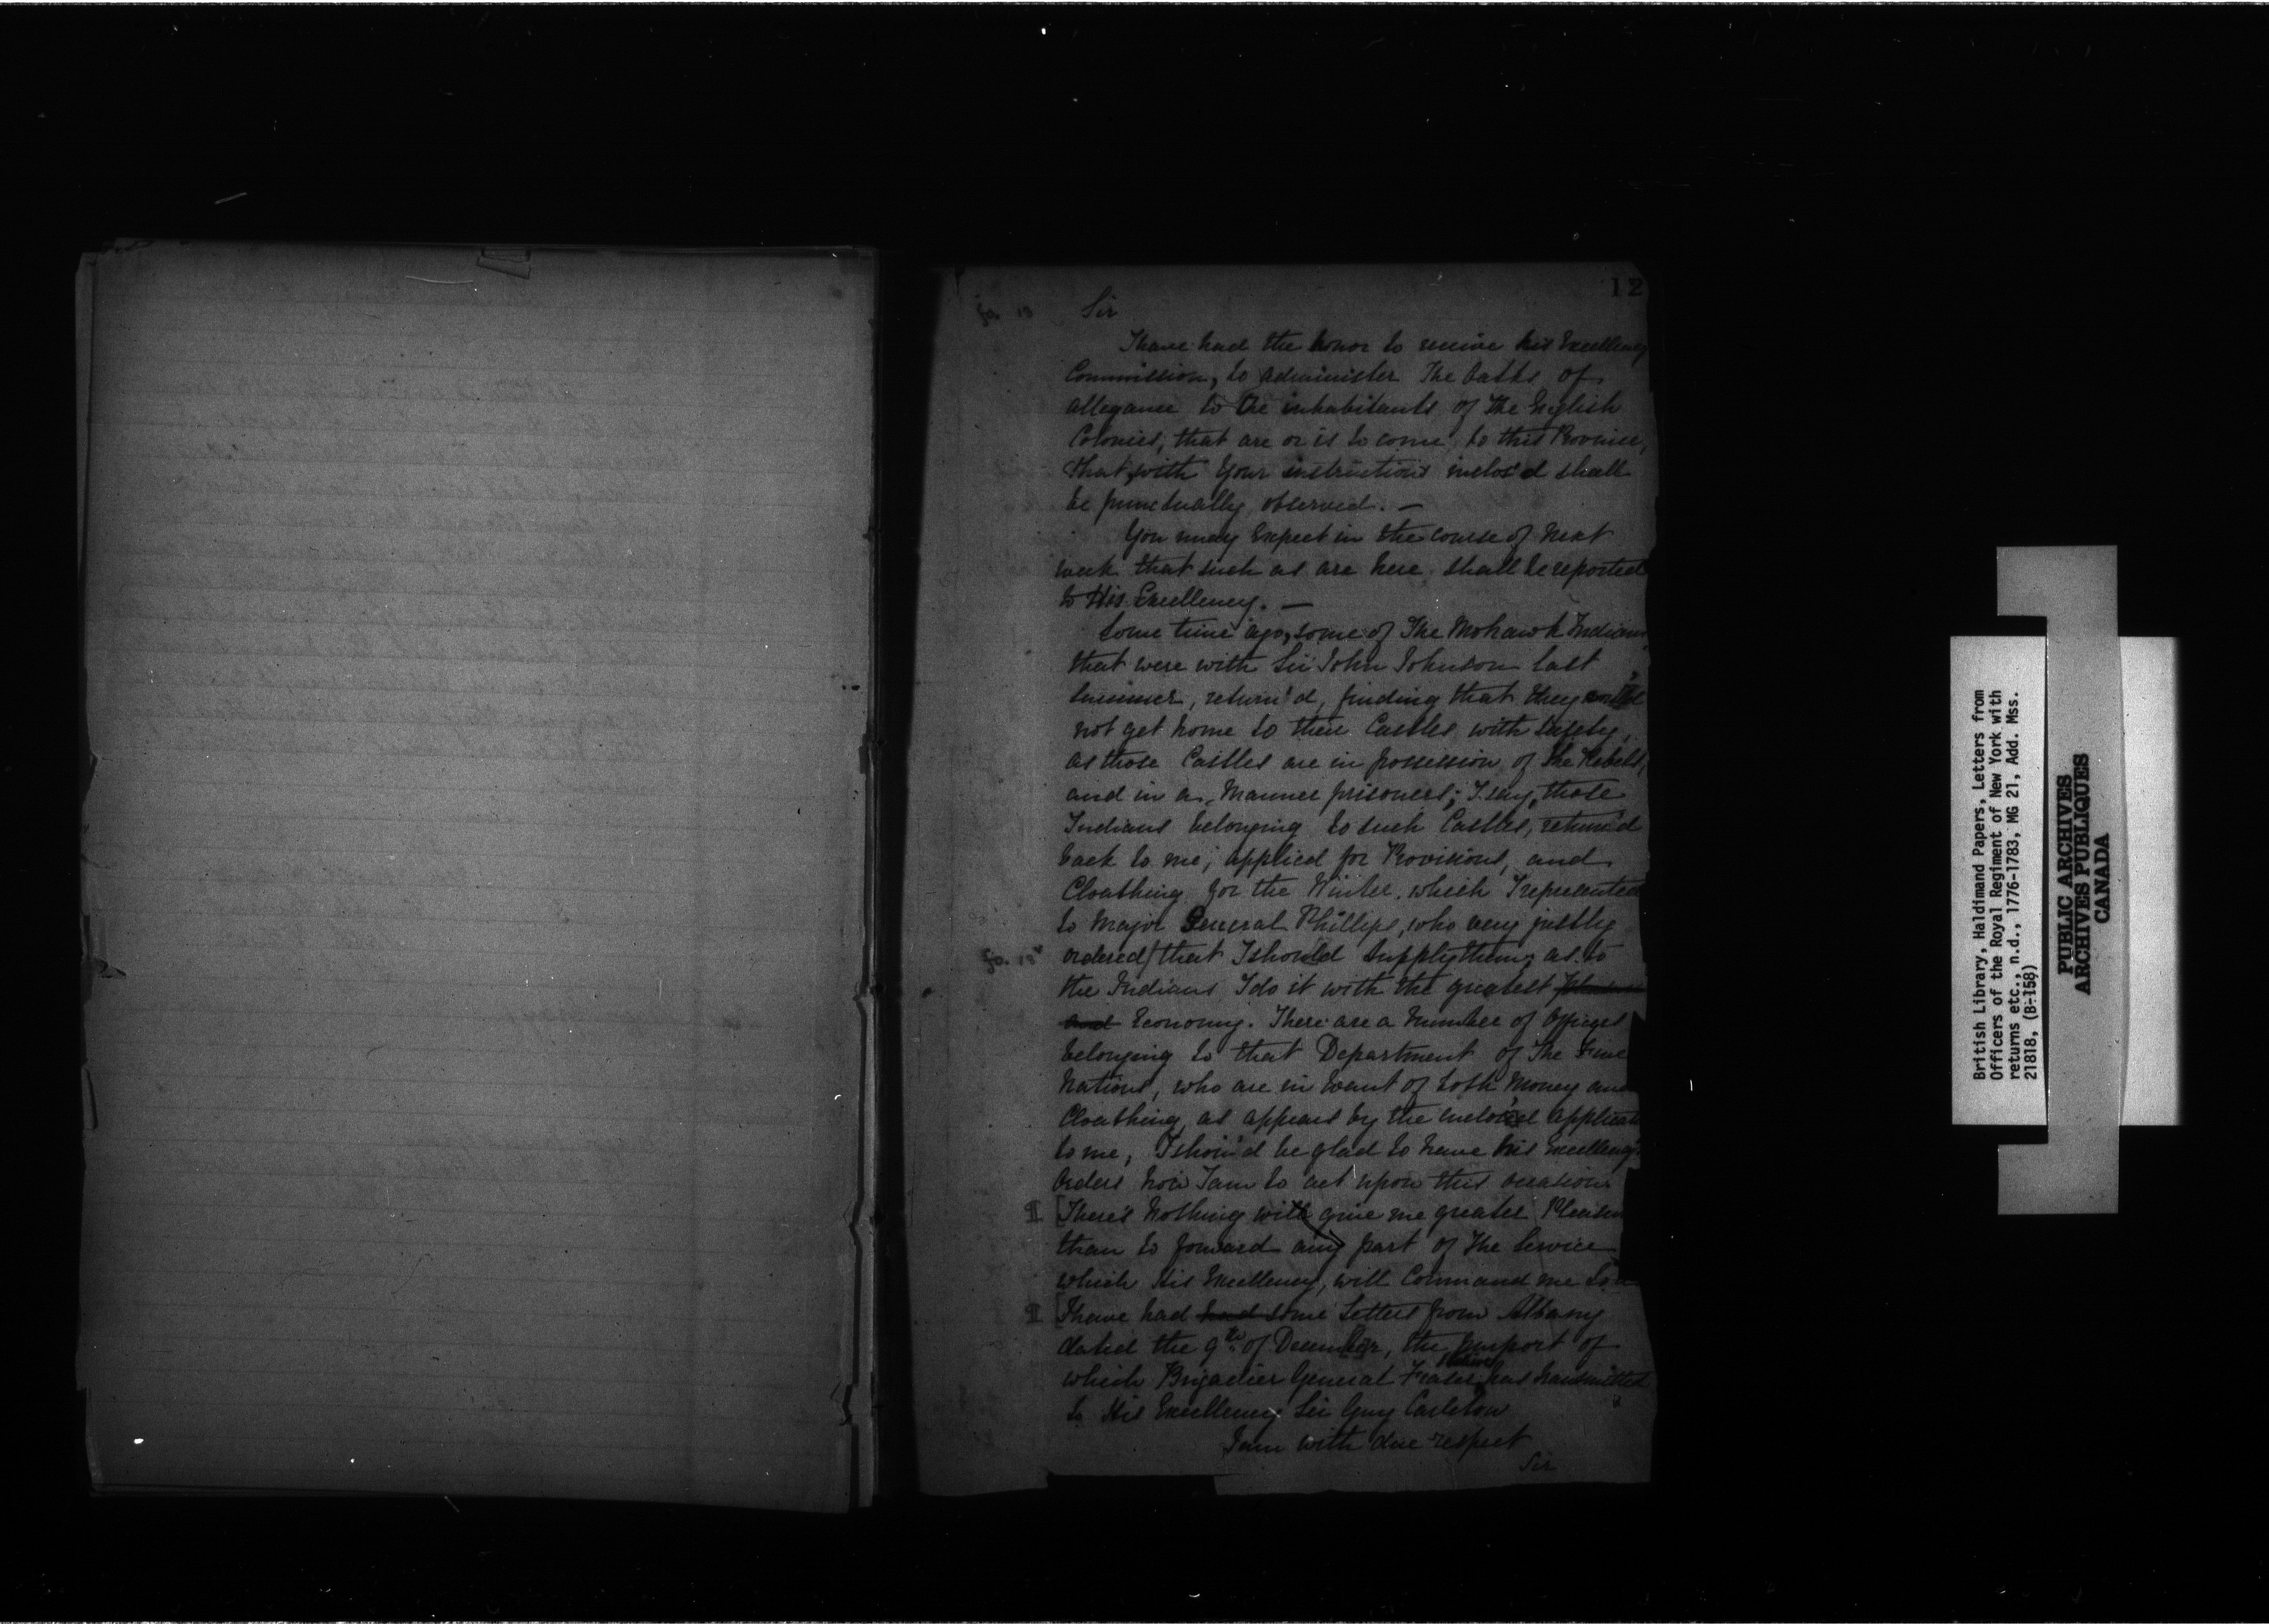 12
fo. 13
Sir
I have had the honor to receive his Excellency
Commission, to administer The Oaths of
allegance to the inhabitants of The English
Colonies, that are or is to come to this Province,
that, with Your instructions inclos'd shall
be punctually observed. —
You may Expect in the course of Next
week that such as are here shall be reported
to His Excellency. —
Some time ago, some of The Mohawk Indians
that were with Sir John Johnson last
Summer, return'd, finding that they could
not get home to their Castles with Safety,
as those Castles are in possession of The Rebels,
and in a Manner prisoners; I say, those
Indians belonging to such Castles, return'd
back to me, applied for Provisions, and
Cloathing for the Winter, which I represented
to Major General Phillips, who very justly
ordered that I should supply them; as to
the Indians I do it with the greatest
and Economy. There are a Number of Officers
belonging to that Department of The Five
Nations, who are in want of both Money and
Cloathing, as appears by the inclosed applicat
to me, I shou'd be glad to have his Excellency's
Orders how I am to act upon this occasion
¶ [There's Nothing will give me greater Pleasu
than to forward any part of The Service
which His Excellency, will Command me to
¶ [I have had had some Letters from Albany
dated the 9th of December, the purport of
which Brigadier General Fraser has transmitted
to His Excellency Sir Guy Carleton
I am with due respect
Sir
British Library, Haldimand Papers, Letters from
Officers of the Royal Regiment of New York with
returns etc., n.d., 1776-1783, MG 21, Add. Mss.
21818, (B-158)
PUBLIC ARCHIVES
ARCHIVES PUBLIQUES
CANADA